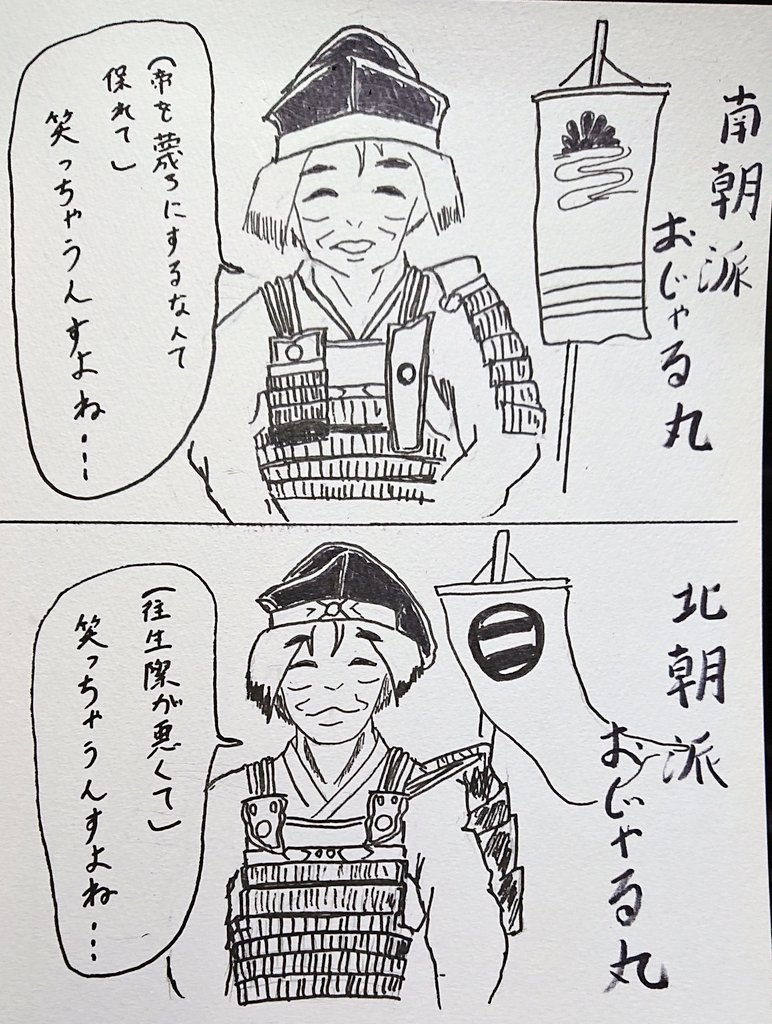 南朝派
おじゃる丸
「帝を蔑ろにするなんて
保れて」
笑っちゃうんすよね…
北朝派
おじゃる丸
「往生際が悪くて」
笑っちゃうんすよね…